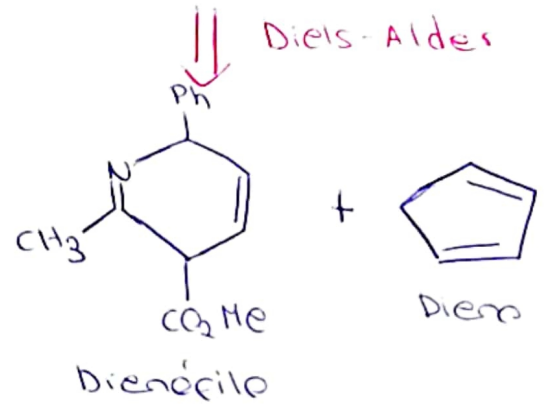 Diels-Alder
Ph
N
CH3
CO2Me
+
Dieno
Dienófilo